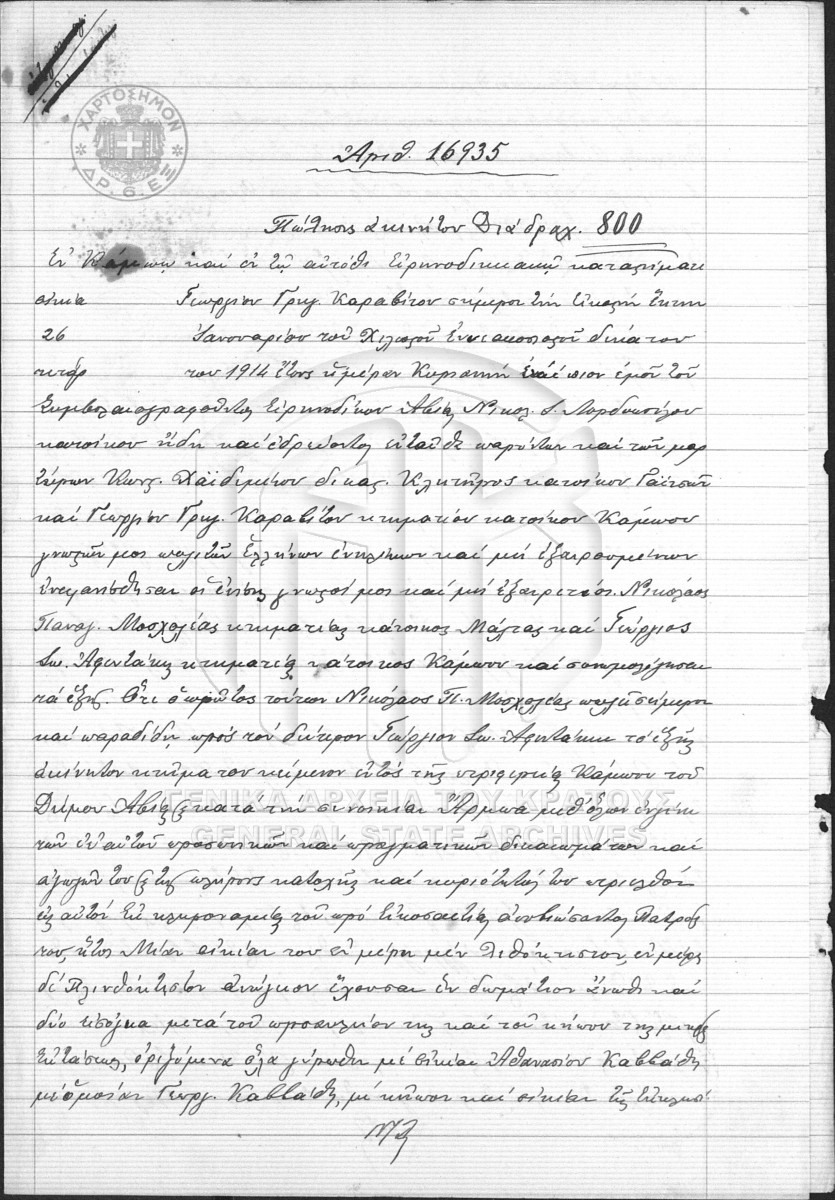 ΧΑΡΤΟΣΗΜΟΝ
ΔΡ. 6. ΕΞ
Αριθ. 16935
Πώλησις ακινήτου Διά δραχ. 800
Εν Κάμπω και εν τω αυτόθι Ειρηνοδικειακώ καταστήματι
οικία Γεωργίου Γρηγ. Καραβίτου σήμερον την εικοστήν έκτην
26 Ιανουαρίου του χιλιοστού εννεακοσιοστού δεκάτου
τετάρ του 1914 έτους ημέραν Κυριακήν ενώπιον εμού του
Συμβολαιογραφούντος Ειρηνοδίκου Αβίας Νικολ. Δ.
κατοίκου ήδη και εδρεύοντος ενταύθα παρόντων και των μαρ
τύρων Κωνσ. Χαϊδεμένου δικασ. Κλητήρος κατοίκου Γαϊτσών
και Γεωργίου Γρηγ. Καραβίτου κτηματίου κατοίκου Κάμπου
γνωστών μοι πολιτών Ελλήνων ενηλίκων και μη εξαιρουμένων
ενεφανίσθησαν οι επίσης γνωστοί μοι και μη εξαιρετέοι Νικόλαος
Παναγ. Μοσχολέας κτηματίας κάτοικος Μάλτας και Γεώργιος
Σω. Αφεντάκης κτηματίας κάτοικος Κάμπου και συνωμολόγησαν
τα εξής. Ότι ο πρώτος τούτων Νικόλαος Π. Μοσχολέας πωλεί σήμερον
και παραδίδει προς τον δεύτερον Γεώργιον Σω. Αφεντάκην το εξής
ακίνητον κτήμα του κείμενον εντός της περιφερείας Κάμπου του
Δήμου Αβίας κατά την συνοικίαν μεθ' όλων ανεξαι
των επ' αυτού προσωπικών και πραγματικών δικαιωμάτων και
αγωγών του της πλήρους κατοχής και κυριότητός του περιελθόν
εις αυτόν εκ κληρονομίας του προ εικοσαετίας αποβιώσαντος Πατρός
του, ήτοι Μίαν οικίαν του εν μέρει μεν λιθόκτιστον, εν μέρει
δε πλινθόκτιστον ανώγειον έχουσαν έν δωμάτιον άνωθι και
δύο ισόγεια μετά του προαυλίου της και του κήπου της μικράς
εκτάσεως, οριζόμενα όλα γύρωθεν με οικίαν Αθανασίου Καββάθα
με ομοίαν Γεωργ. Καββάθα, με κήπον και οικίαν της εκκλησί
ΓΕΝΙΚΑ ΑΡΧΕΙΑ ΤΟΥ ΚΡΑΤΟΥΣ
GENERAL STATE ARCHIVES